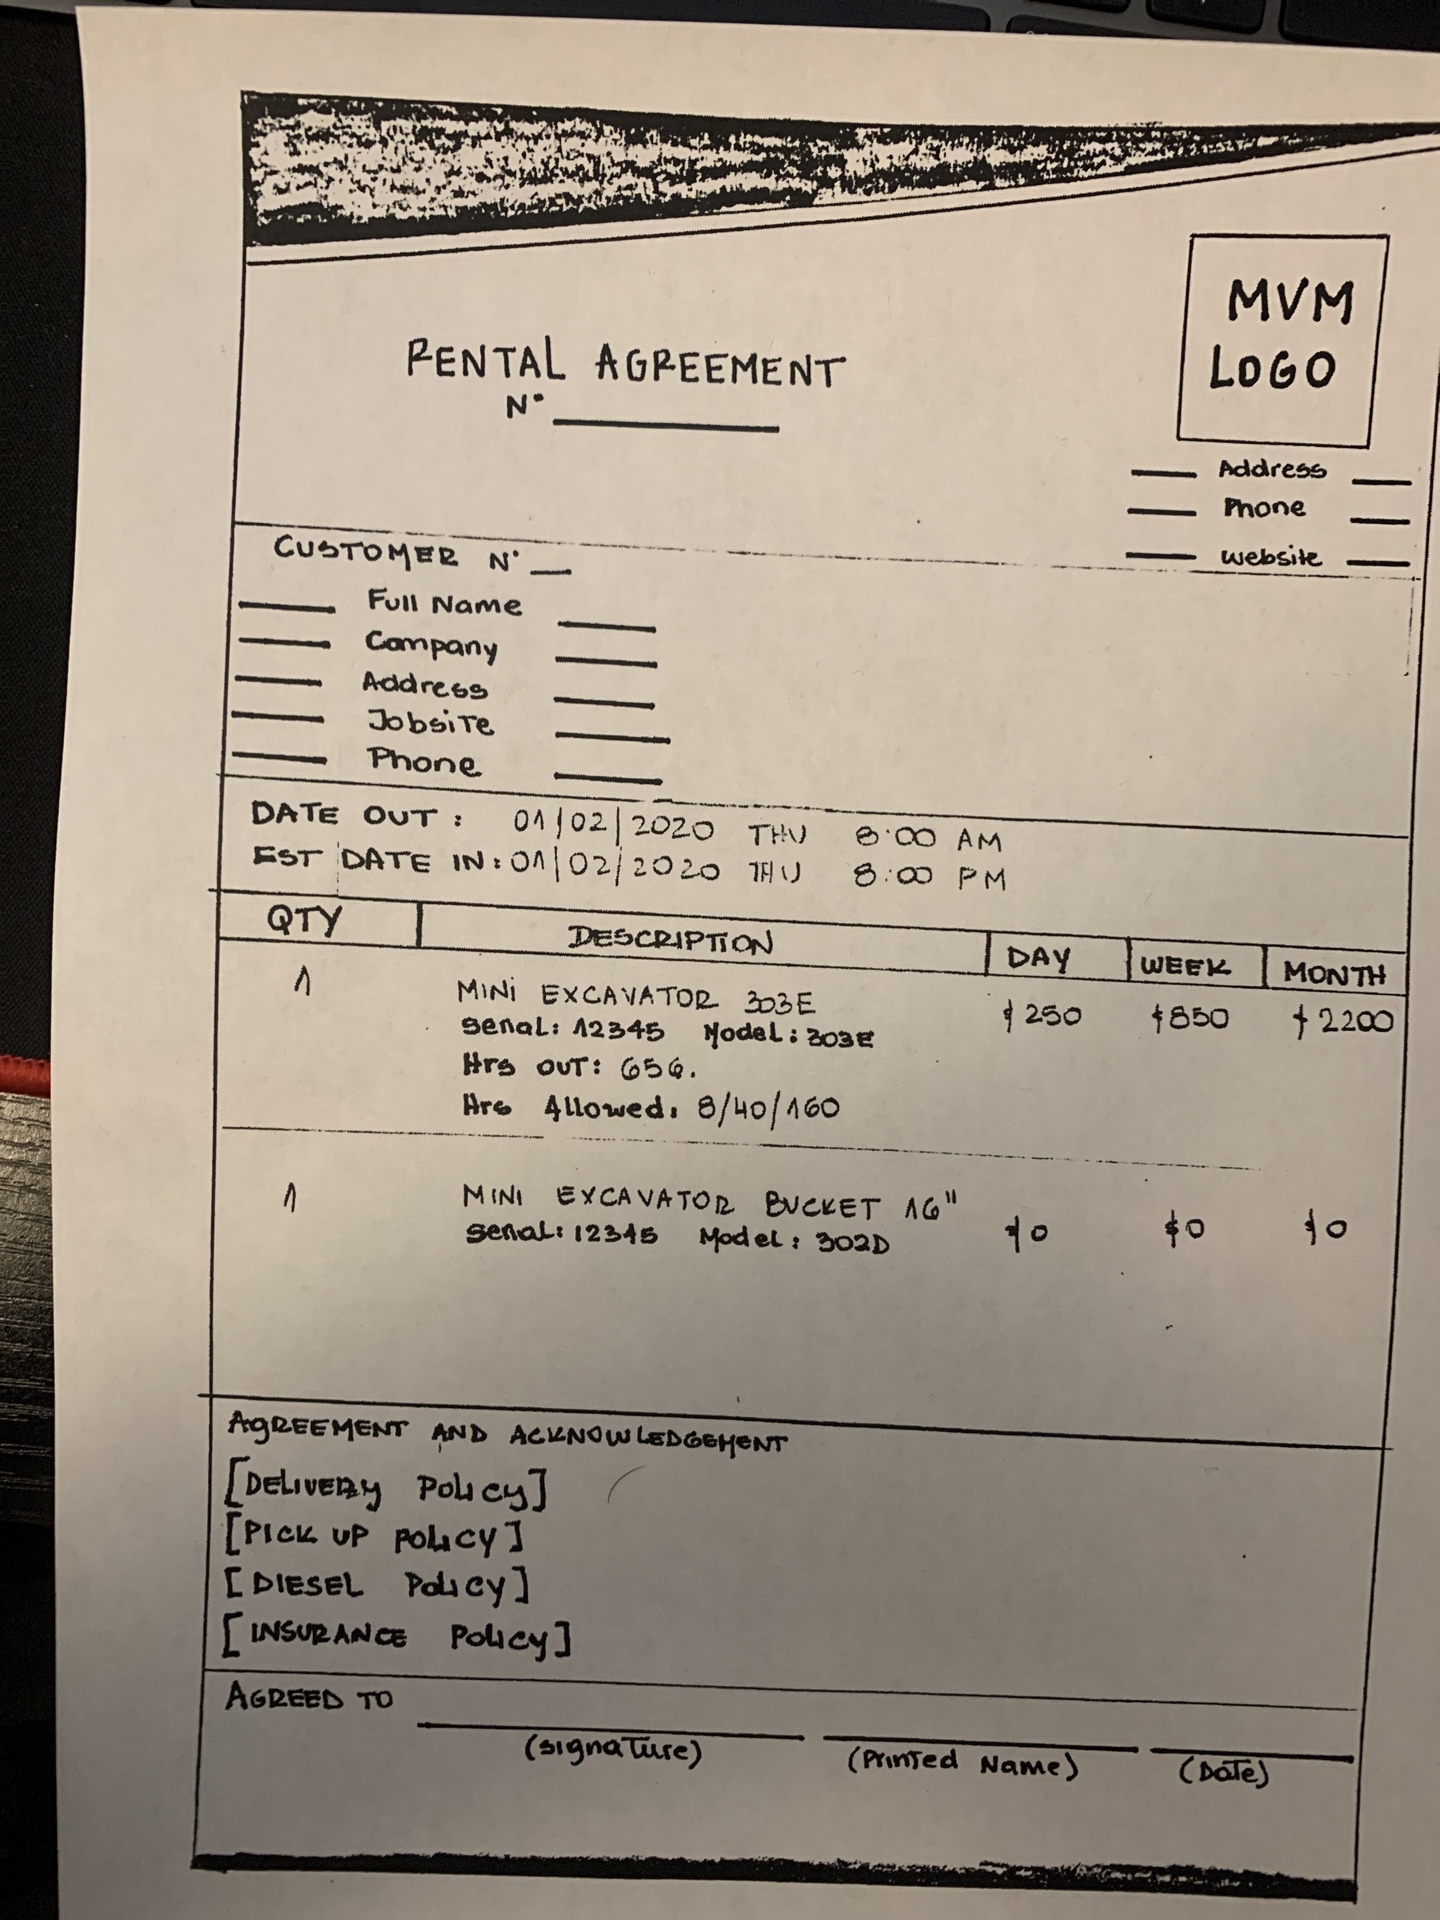 MVM
LOGO
RENTAL AGREEMENT
N°
Address
Phone
Website
CUSTOMER N°
Full Name
Company
Address
Jobsite
Phone
DATE OUT: 01/02/2020 THU 8:00 AM
EST DATE IN: 01/02/2020 THU 8:00 PM
QTY DESCRIPTION DAY WEEK MONTH
1 MINI EXCAVATOR 303E $250 $850 $2200
Serial: 12345 Model: 303E
Hrs OUT: 656.
Hrs Allowed: 8/40/160
1 MINI EXCAVATOR BUCKET 16" $0 $0 $0
Serial: 12345 Model: 302D
AGREEMENT AND ACKNOWLEDGEMENT
[DELIVERY POLICY]
[PICK UP POLICY]
[DIESEL POLICY]
[INSURANCE POLICY]
AGREED TO
(signature) (Printed Name) (Date)